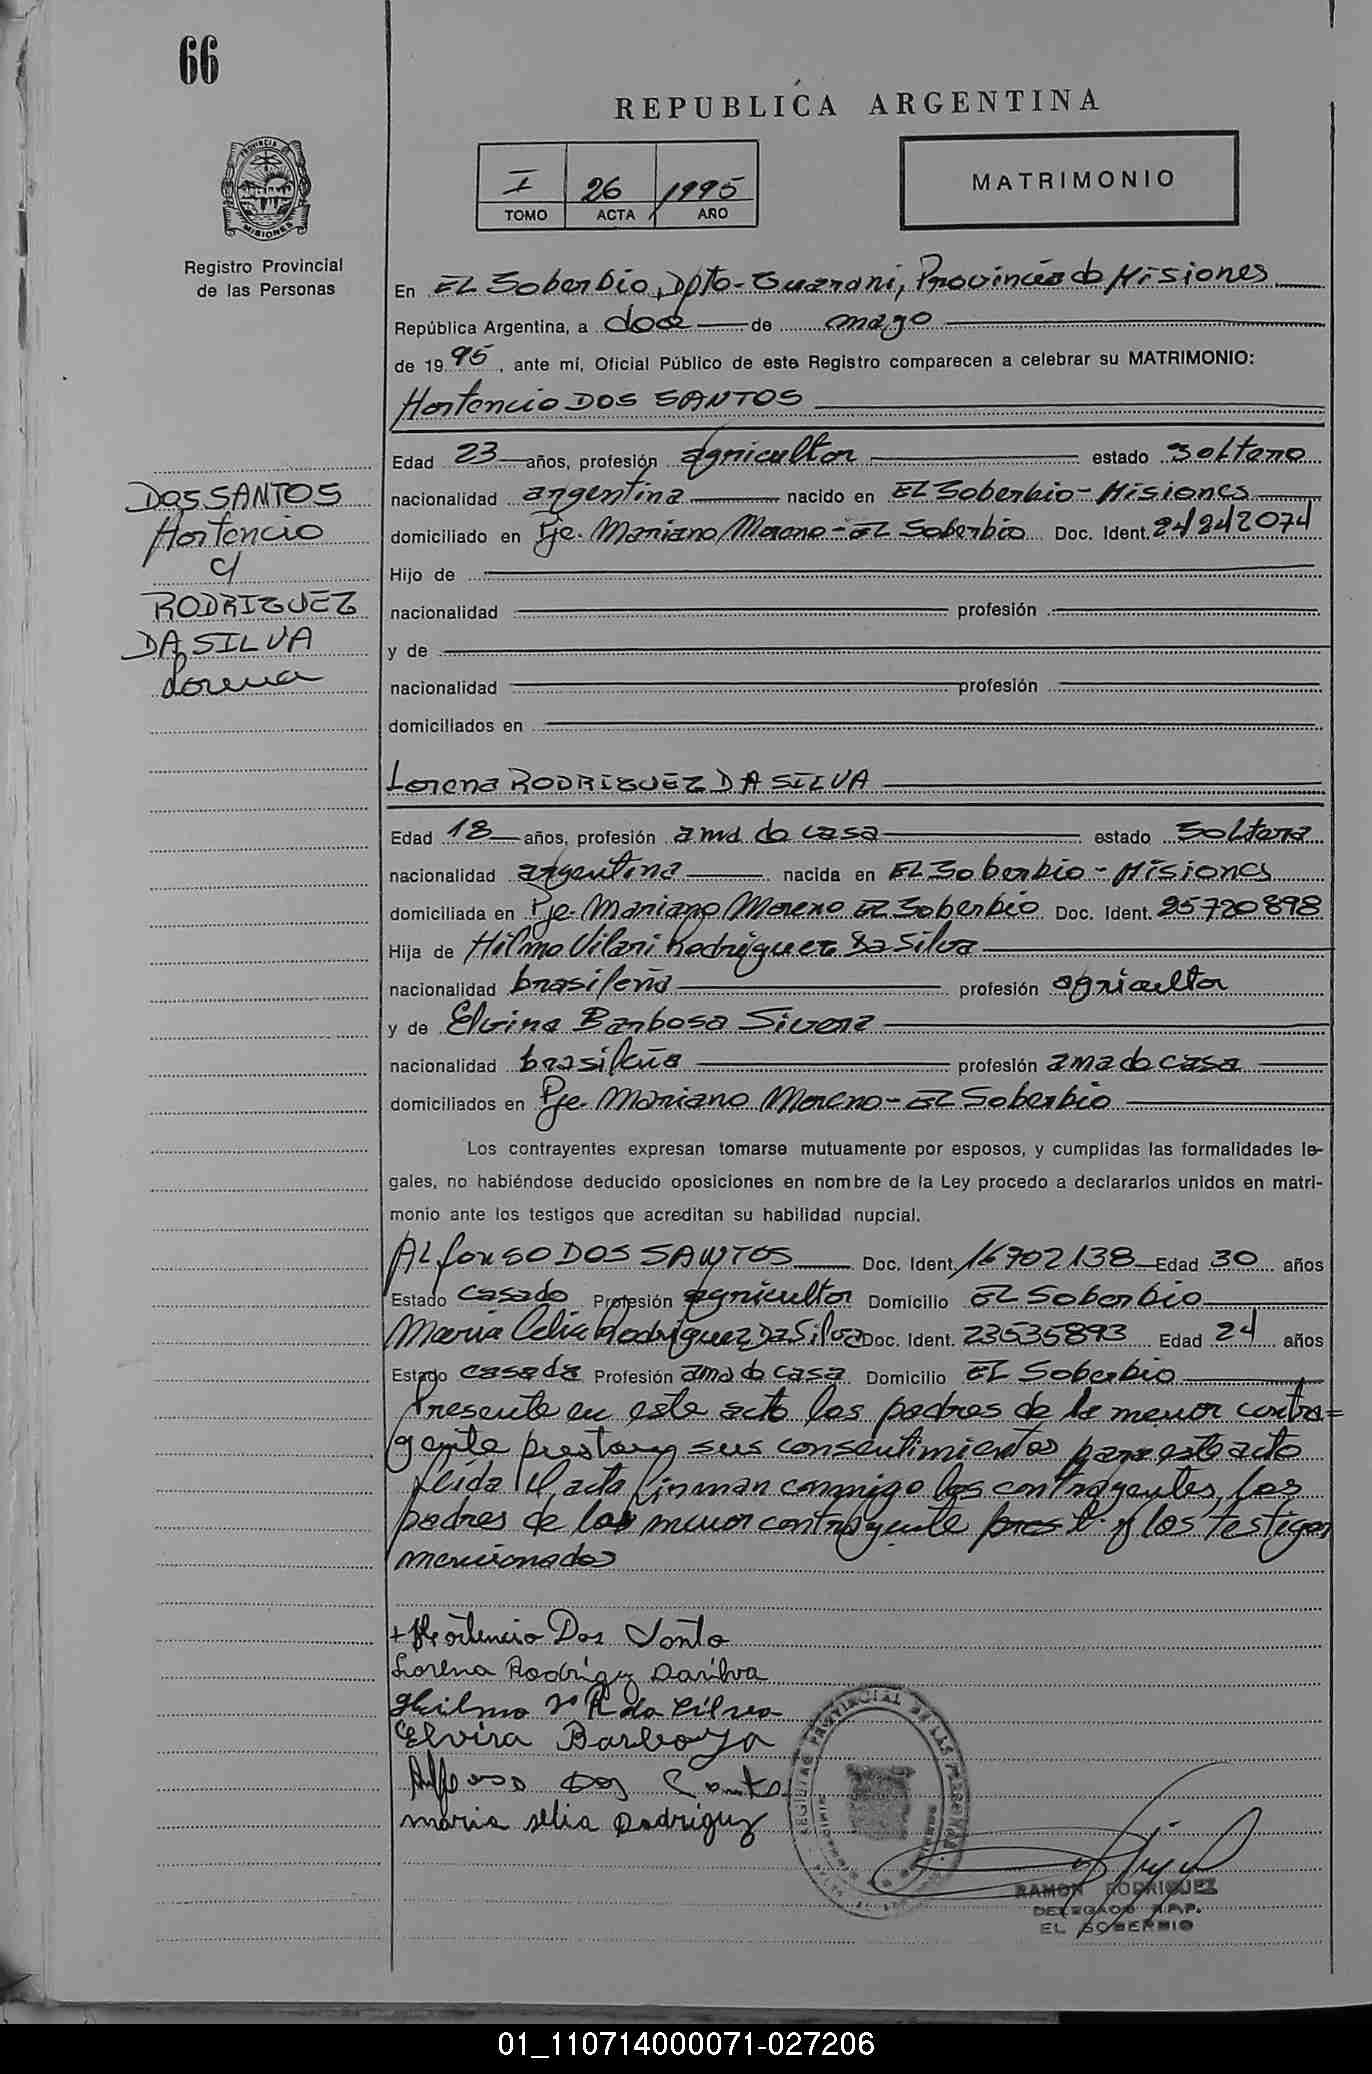 66
REPUBLICA ARGENTINA
PROVINCIA DE MISIONES
Registro Provincial
de las Personas
I 26 1995
TOMO ACTA AÑO
MATRIMONIO
En EL Soberbio, Dpto-Guarani, Provincia de Misiones
República Argentina, a doce de mayo
de 1995, ante mí, Oficial Público de este Registro comparecen a celebrar su MATRIMONIO:
Hortencio DOS SANTOS
Edad 23 años, profesión agricultor estado soltero
nacionalidad argentina nacido en EL Soberbio - Misiones
domiciliado en Pje. Mariano Moreno - EL Soberbio Doc. Ident. 24242074
Hijo de
nacionalidad profesión
y de
nacionalidad profesión
domiciliados en
DOS SANTOS
Hortencio
c/
RODRIGUEZ
DA SILVA
Lorena
Lorena RODRIGUEZ DA SILVA
Edad 18 años, profesión ama de casa estado soltera
nacionalidad argentina nacida en EL Soberbio - Misiones
domiciliada en Pje. Mariano Moreno EL Soberbio Doc. Ident. 25720898
Hija de Hilmo Vilari Rodriguez Da Silva
nacionalidad brasileña profesión agricultor
y de Elvina Barbosa Sivera
nacionalidad brasileña profesión ama de casa
domiciliados en Pje. Mariano Moreno - EL Soberbio
Los contrayentes expresan tomarse mutuamente por esposos, y cumplidas las formalidades le-
gales, no habiéndose deducido oposiciones en nombre de la Ley procedo a declararlos unidos en matri-
monio ante los testigos que acreditan su habilidad nupcial.
ALfonso DOS SANTOS Doc. Ident. 16902138 Edad 30 años
Estado casado Profesión agricultor Domicilio EL Soberbio
Maria Celia Rodriguez Da Silva Doc. Ident. 23535893 Edad 24 años
Estado casada Profesión ama de casa Domicilio EL Soberbio
Presente en este acto los padres de la menor contra=
yente prestan sus consentimientos para este acto
Leida el acta firman conmigo los contrayentes, los
padres de la menor contrayente y los testigos
mencionados
+ Hortencio Dos Santo
Lorena Rodriguz Dasilva
Hilmo V R da Cilva
Elvira Barboza
Alfonso Dos Santo
maria selia Rodriguz
REGISTRO PROVINCIAL DE LAS PERSONAS
RAMON RODRIGUEZ
DELEGADO R.P.P.
EL SOBERBIO
01_110714000071-027206